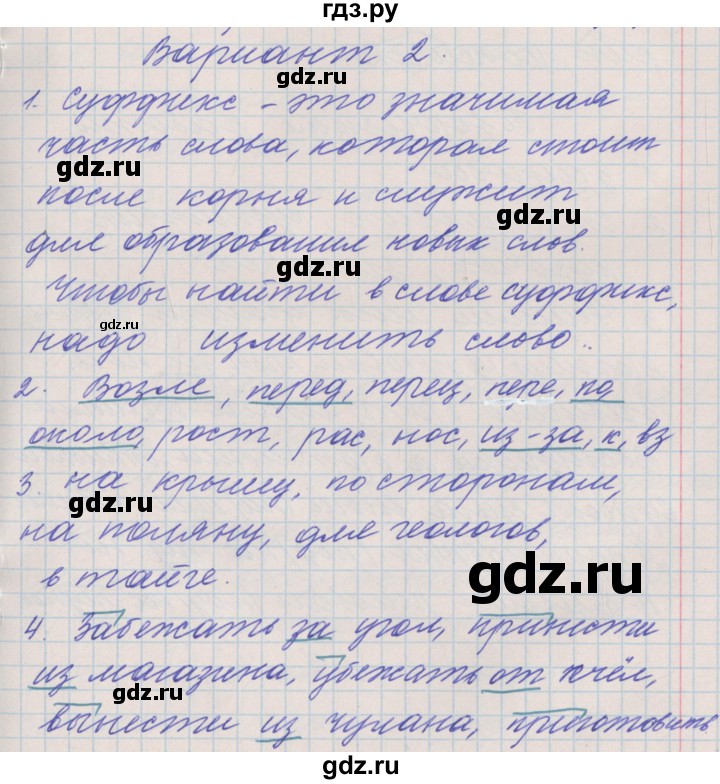 гдз.ру
Вариант 2
gdz.ru
1. Суффикс - это значимая
часть слова, которая стоит
gdz.ru
после корня и служит
gdz.ru
для образования новых слов.
gdz.ru
Чтобы найти в слове суффикс,
gdz.ru
надо изменить слово.
2. Возле, перед, перец, пере, по
gdz.ru
около, рост, рас, нос, из-за, к, вз
3. на крышу, по сторонам,
gdz.ru
на поляну, для геологов,
в тайге.
gdz.ru
4. Забежать за угол, принести
gdz.ru
из магазина, убежать от пчёл,
gdz.ru
вынести из чулана, приготовить
gdz.ru